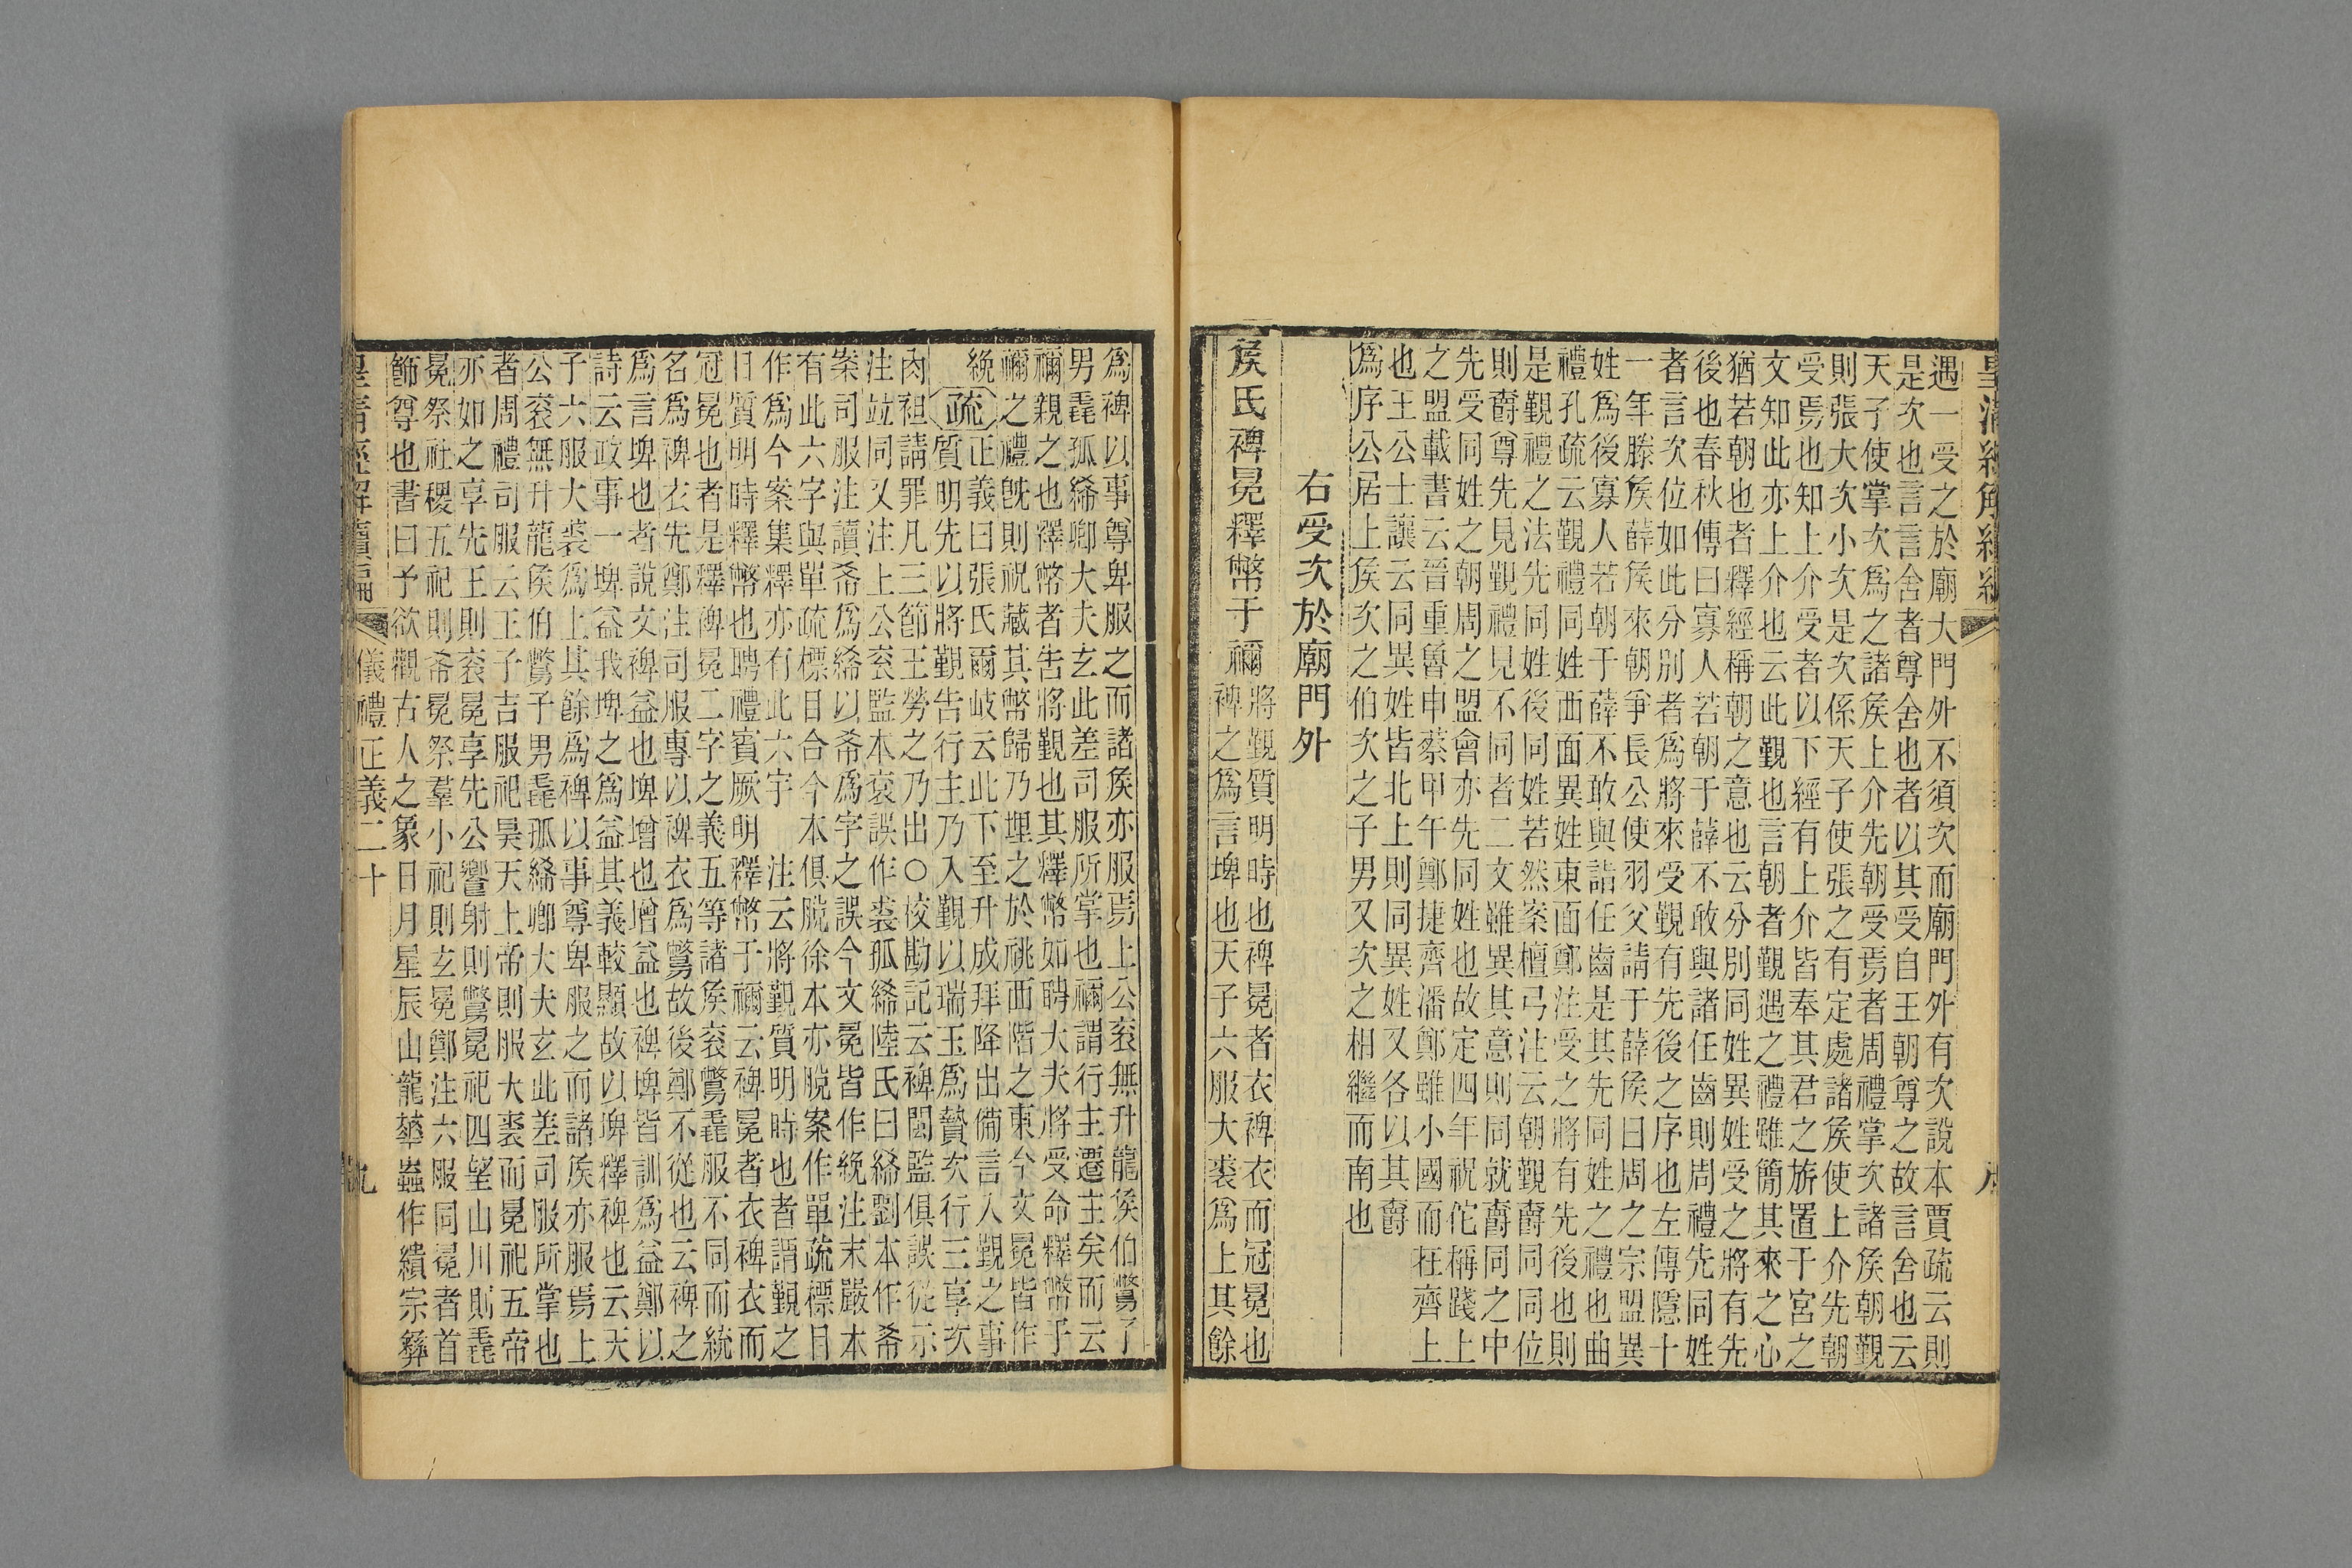 遇一受之於廟大門外不須次而廟門外有次說本賈疏云則
是次也言言舍者尊舍也者以其受自王朝尊之故言舍也云
天子使掌次爲之諸矦上介先朝受焉者周禮掌次諸矦朝覲
則張大次小次是次係天子使張之有定處諸矦使上介先朝
受焉也知上介受者以下經有上介皆奉其君之旂置于宮之
文知此亦上介也云此覲也言朝者覲遇之禮雖簡其來之心
猶若朝也者釋經稱朝之意也云分別同姓異姓受之將有先
後也春秋傳曰寡人若朝于薛不敢與諸任齒則周禮先同姓
者言次位如此分別者爲將來受覲有先後之序也左傳隱十
一年滕矦薛矦來朝爭長公使羽父請于薛矦曰周之宗盟異
姓爲後寡人若朝于薛不敢與諸任齒是其先同姓之禮也曲
禮孔疏云覲禮同姓西面異姓東面鄭注受之將有先後也則
是覲禮之法先同姓後同姓若然案檀弓注云朝覲爵同同位
則爵尊先見覲禮見不同者二文雖異其意則同就爵同之中
先受同姓之朝周之盟會亦先同姓也故定四年祝佗稱踐上
之盟載書云晉重魯申蔡甲午鄭捷齊潘鄭雖小國而在齊上
也王公士讓云同異姓皆北上則同異姓又各以其爵
爲序公居上矦次之伯次之子男又次之相繼而南也
右受次於廟門外
矦氏裨冕釋幣于禰
將覲質明時也裨冕者衣裨衣而冠冕也
裨之爲言埤也天子六服大裘爲上其餘
爲裨以事尊卑服之而諸矦亦服焉上公衮無升龍矦伯鷩子
男毳孤絺卿大夫玄此差司服所掌也禰謂行主遷主矣而云
禰親之也釋幣者告將覲也其釋幣如聘大夫將受命釋幣于
禰之禮旣則祝藏其幣歸乃埋之於祧西階之東今文冕皆作
絻
疏
正義曰張氏爾岐云此下至升成拜降出備言入覲之事
質明先以將覲告行主乃入覲以瑞玉爲贄次行三享次
肉袒請罪凡三節王勞之乃出○校勘記云裨閩監俱誤從示
注竝同又注上公衮監本衮誤作裘孤絺陸氏曰絺劉本作希
案司服注讀希爲絺以希爲字之誤今文冕皆作絻注末嚴本
有此六字與單疏標目合今本俱脫徐本亦脫案作單疏標目
作爲今案集釋亦有此六字　注云將覲質明時也者謂覲之
日質明時釋幣也聘禮賓厥明　釋幣于禰云裨冕者衣裨衣而
冠冕也者是釋裨冕二字之義五等諸矦衮鷩毳服不同而統
名爲裨衣先鄭注司服專以裨衣爲鷩故後鄭不從也云裨之
爲言埤也者說文裨益也埤增也增益也裨埤皆訓爲益鄭以
詩云政事一埤益我埤之爲益其義較顯故以埤釋裨也云天
子六服大裘爲上其餘爲裨以事尊卑服之而諸矦亦服焉上
公衮無升龍矦伯鷩子男毳孤絺卿大夫玄此差司服所掌也
者周禮司服云王子吉服祀昊天上帝則服大裘而冕祀五帝
亦如之享先王則衮冕享先公饗射則鷩冕祀四望山川則毳
冕祭社稷五祀則希冕祭羣小祀則玄冕鄭注六服同冕者首
飾尊也書曰予欲觀古人之象日月星辰山龍華蟲作繢宗彝
皇清經解續編
儀禮正義二十
九